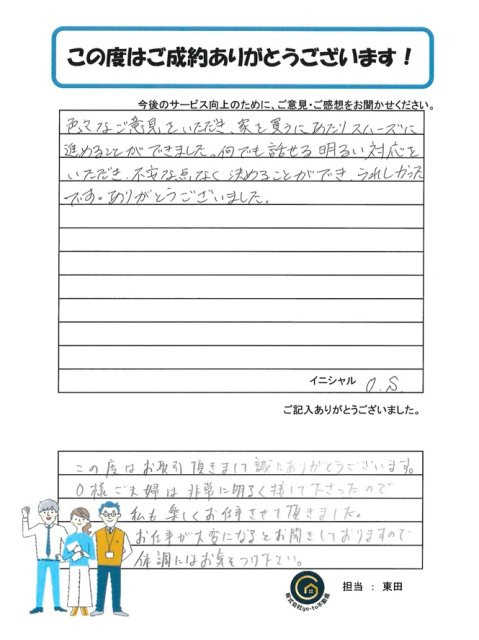 この度はご成約ありがとうございます！
今後のサービス向上のために、ご意見・ご感想をお聞かせください。
色々なご意見をいただき、家を買うにあたりスムーズに
進めることができました。何でも話せる明るい対応を
いただき、不安な点なく決めることができ、うれしかった
です。ありがとうございました。
イニシャル O.S.
ご記入ありがとうございました。
この度はお取引頂きまして誠にありがとうございます。
O様ご夫婦は非常に明るく接して下さったので
私も楽しくお仕事させて頂きました。
お仕事が大変になるとお聞きしておりますので
体調にはお気をつけ下さい。
株式会社go-to不動産
担当 ： 東田